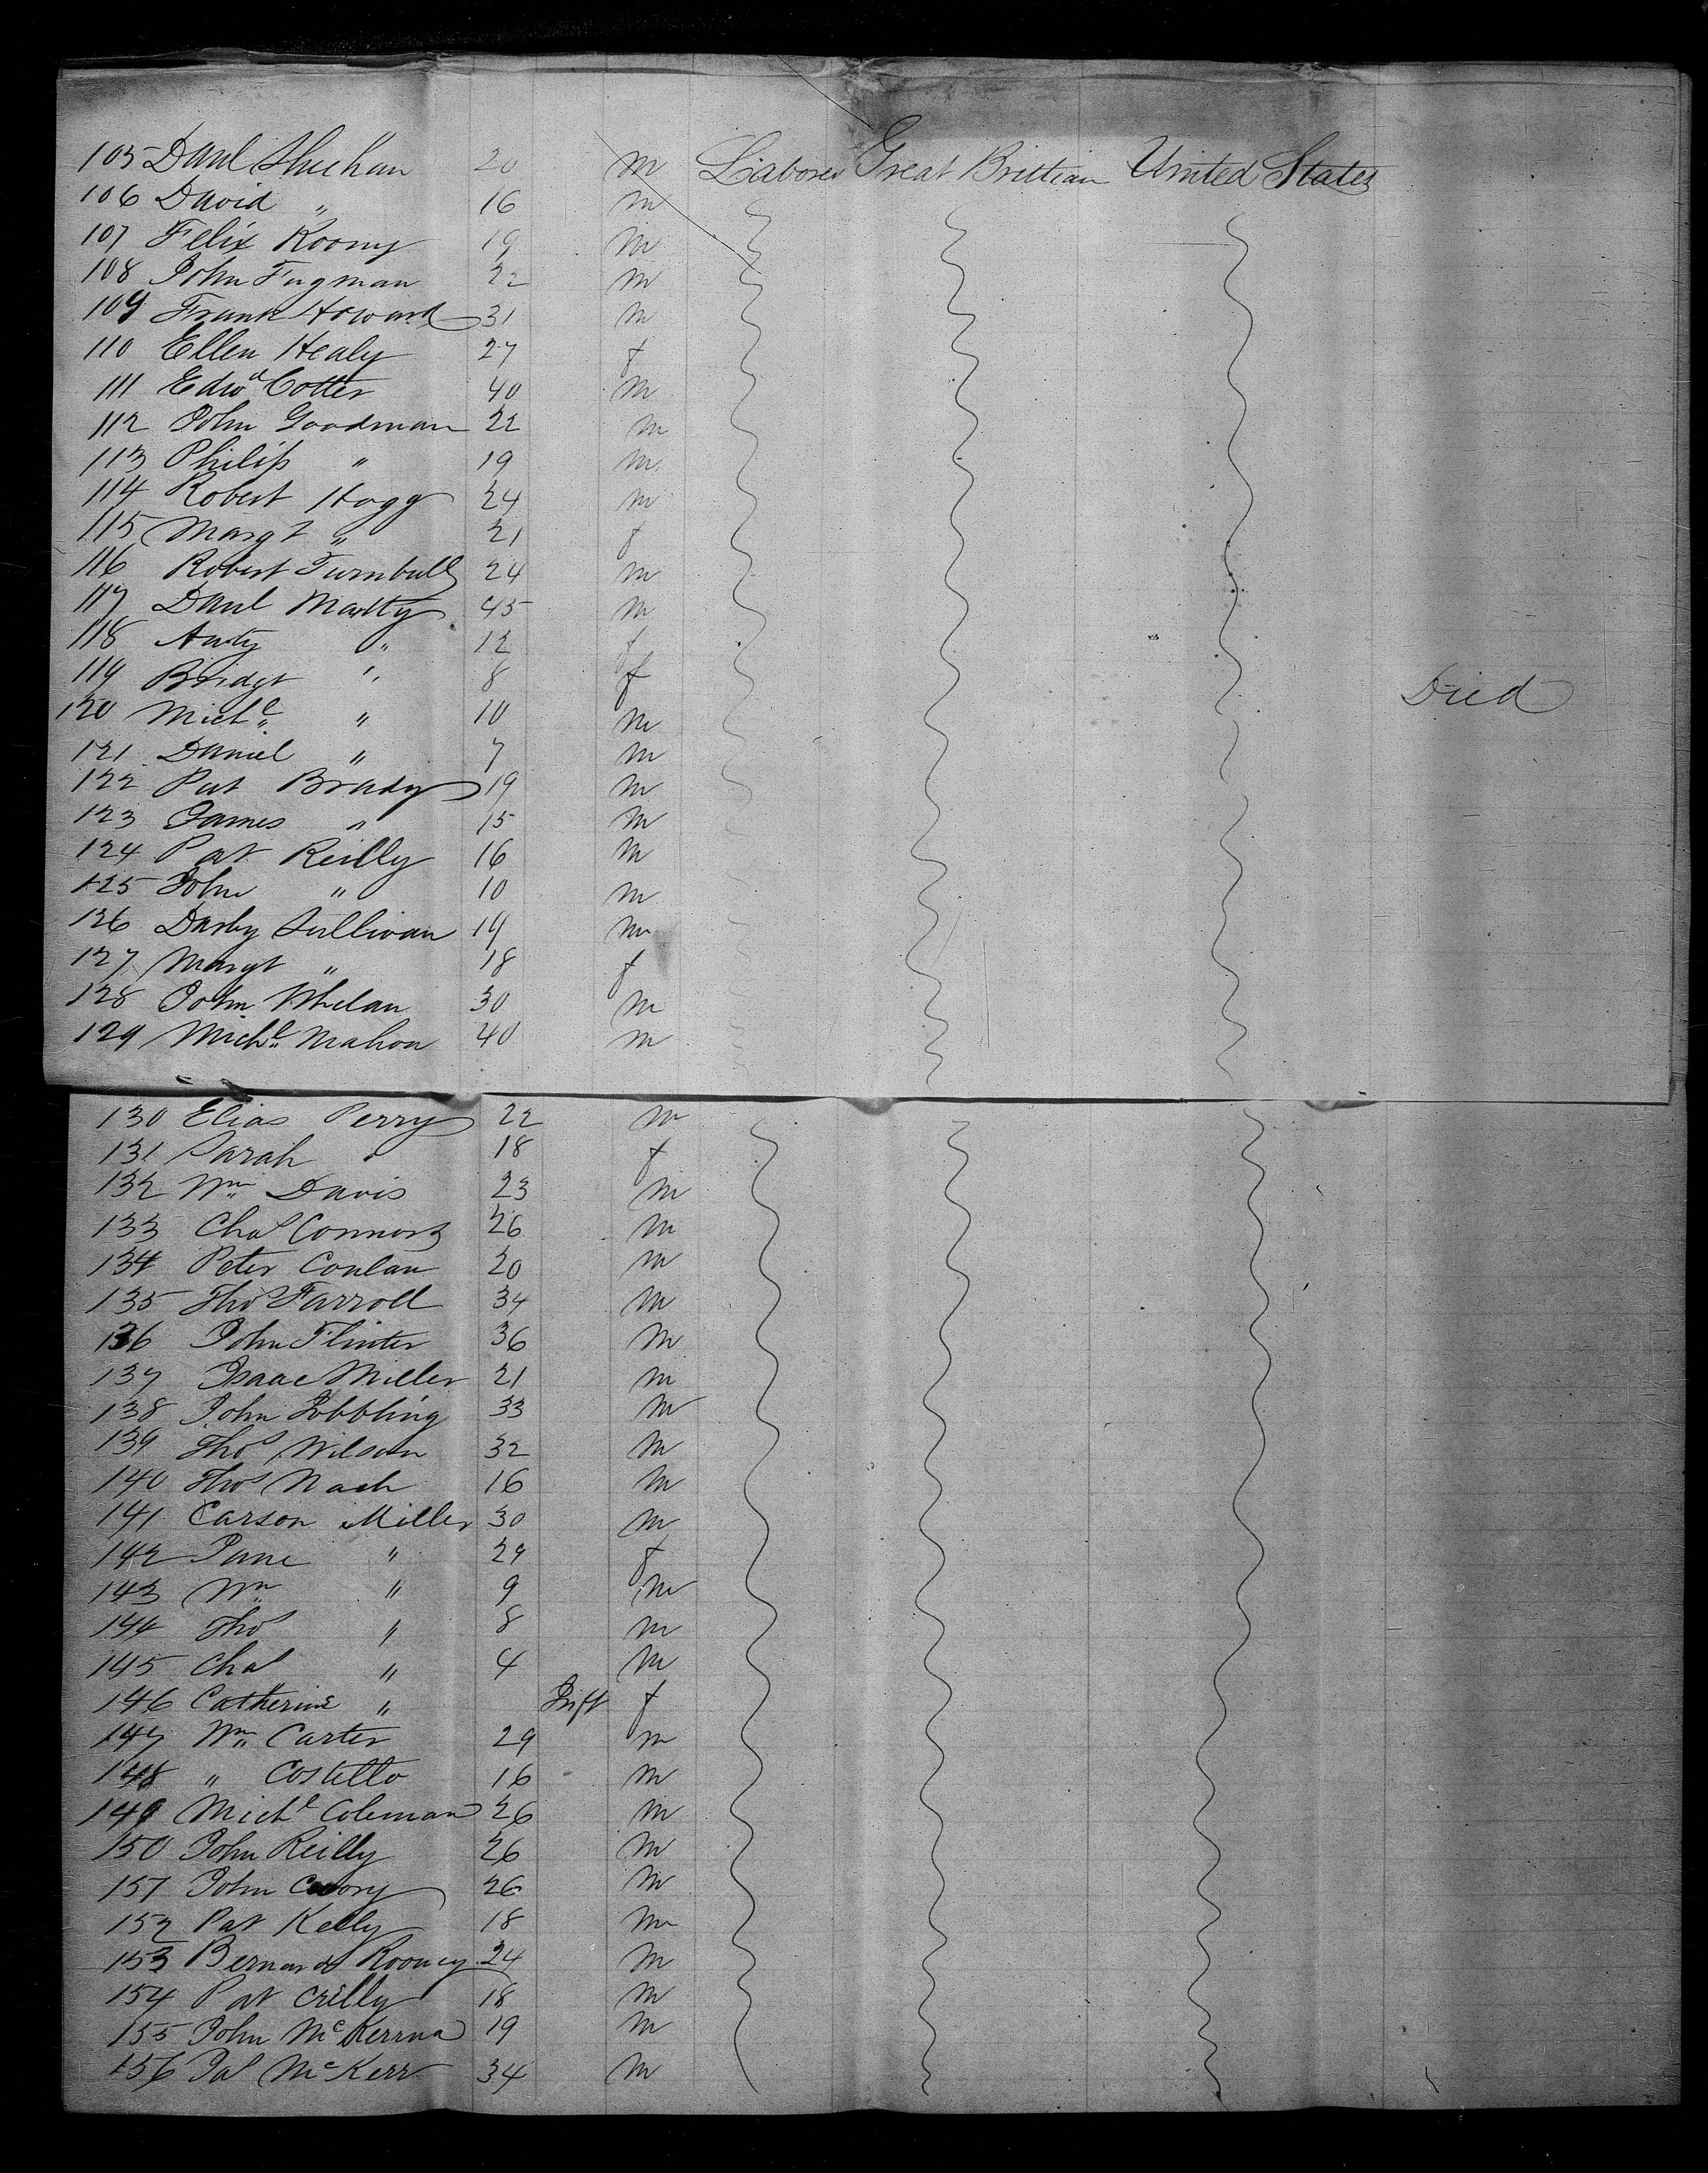 105 Danl Sheehan 20 m Laborer Great Brittian United States
106 David " 16 m
107 Felix Roony 19 m
108 John Fugman 22 m
109 Frank Howard 31 m
110 Ellen Healy 27 f
111 Edwd Cotter 40 m
112 John Goodman 22 m
113 Philip " 19 m
114 Robert Hogg 24 m
115 Margt " 21 f
116 Robert Turnbull 24 m
117 Danl 45 m
118 " 12 f
119 Bridgt " 8 f Died
120 Michl " 10 m
121 Daniel " 7 m
122 Pat Brady 19 m
123 James " 15 m
124 Pat Reilly 16 m
125 John " 10 m
126 Darby Sullivan 19 m
127 Margt " 18 f
128 John Whelan 30 m
129 Michl Mahon 40 m
130 Elias Perry 22 m
131 Sarah " 18 f
132 Wm Davis 23 m
133 Chas Connors 26 m
134 Peter Conlan 20 m
135 Thos Farroll 34 m
136 John Flinter 36 m
137 Isaac Miller 21 m
138 John 33 m
139 Thos Wilson 32 m
140 Thos Nash 16 m
141 Carson Miller 30 m
142 Jane " 29 f
143 Wm " 9 m
144 Thos " 8 m
145 Chas " 4 m
146 Catherine " Inft f
147 Wm Carter 29 m
148 " Costello 16 m
149 Michl Coleman 26 m
150 John Reilly 26 m
151 John 26 m
152 Pat Kelly 18 m
153 Bernard Rooney 24 m
154 Pat Crilly 18 m
155 John McKerrna 19 m
156 Jas McKerr 34 m